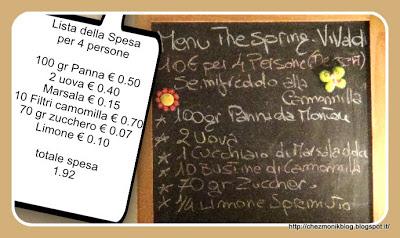 Lista della Spesa
per 4 persone
100 gr Panna € 0.50
2 uova € 0.40
Marsala € 0.15
10 Filtri camomilla € 0.70
70 gr zucchero € 0.07
Limone € 0.10
totale spesa
1.92
Menu The Spring. Vivaldi
10€ per 4 Persone
Semifreddo alla
Cammonilla
* 100gr Panna da Montau
* 2 Uova
* 1 Cucchiaio di Marsala
* 10 Bustine di Cammonilla
* 70 gr Zucchero
* 1/4 Limone Spremuto
http://chezmonikblog.blogspot.it/